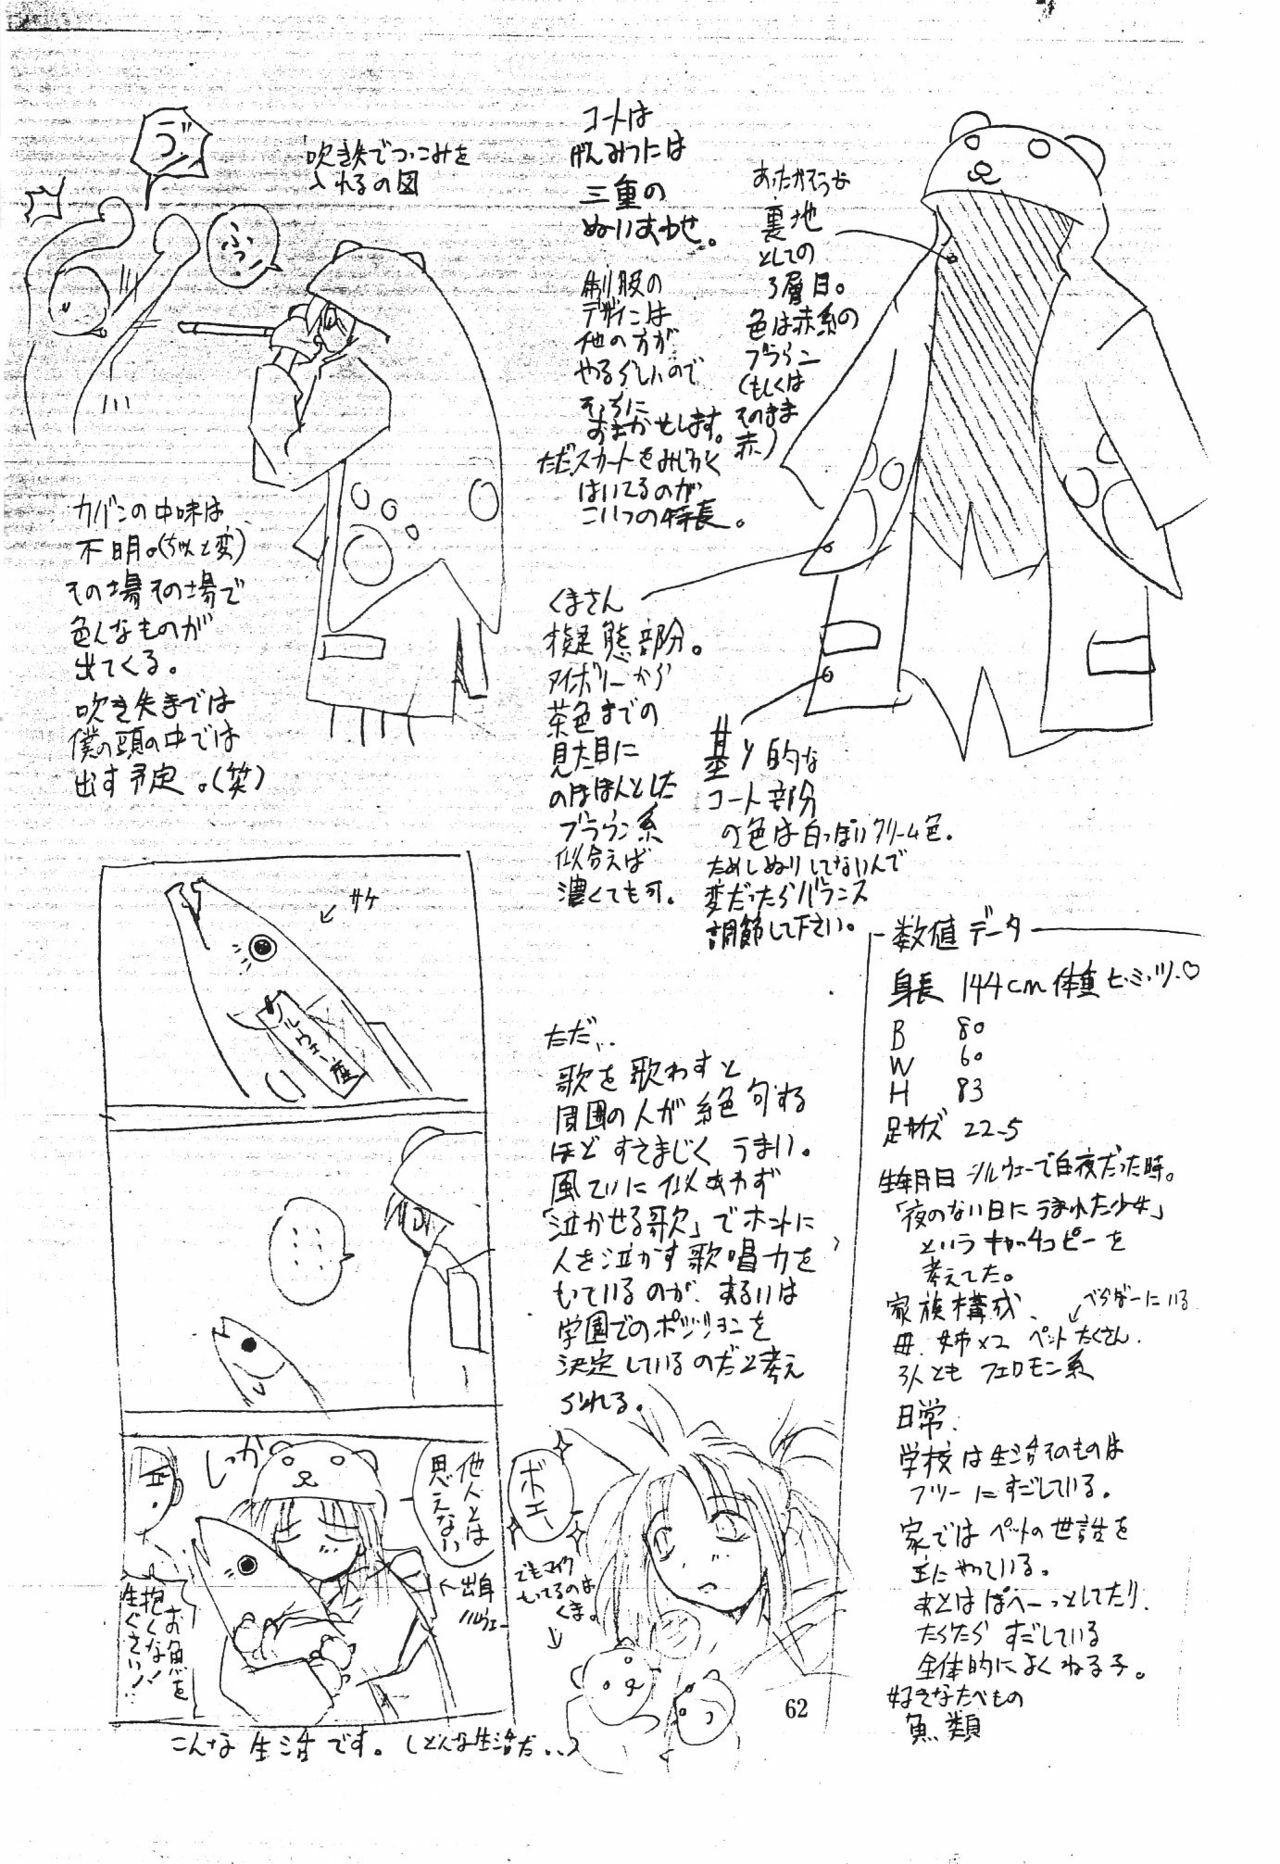 吹き矢でつっこみを
入れるの図
ふっ
コートは
げんみつには
三重の
ぬいあわせ。
制服の
デザインは
他の方が
やるらしいので
そっちに
おまかせします。
ただスカートをみじかく
はいてるのが
こいつの特長。
あったかそうな
裏地
としての
3層目。
色は赤系の
ブラウン
(もしくは
そのまま
赤)
カバンの中味は
不明。(ちょっと変)
その場その場で
色んなものが
出てくる。
吹き矢までは
僕の頭の中では
出す予定。(笑)
くまさん
擬態部分。
アイボリーから
茶色までの
見た目に
のほほんとした
ブラウン系
似合えば
濃くても可。
基本的な
コート部分
の色は白っぽいクリーム色。
ためしぬりしてないんで
変だったらバランス
調節して下さい。
サケ
ノルウェー産
……
しっか
他人とは
思えない
出身
ノルウェー
お魚を
抱くな!
生ぐさい!
こんな生活です。(どんな生活だ…)
ただ…
歌を歌わすと
周囲の人が絶句する
ほどすさまじくうまい。
風ていに似あわず
「泣かせる歌」でホントに
人を泣かす歌唱力を
もっているのが、あるいは
学園でのポジションを
決定しているのだと考え
られる。
ボエ〜
でもマイク
もってるのは
くま。
62
数値データ
身長 144cm 体重 ヒ・ミ・ツ♡
B 80
W 60
H 83
足サイズ 22.5
生年月日 ノルウェーで白夜だった時。
「夜のない日にうまれた少女」
というキャッチコピーを
考えてた。
家族構成
母、姉×2 ペットたくさん。
べらぼーにいる
3人ともフェロモン系
日常
学校は生活そのものは
フツーにすごしている。
家ではペットの世話を
主にやっている。
あとはぽへーっとしてたり、
だらだらすごしている
全体的によくねる子。
好きなたべもの
魚類